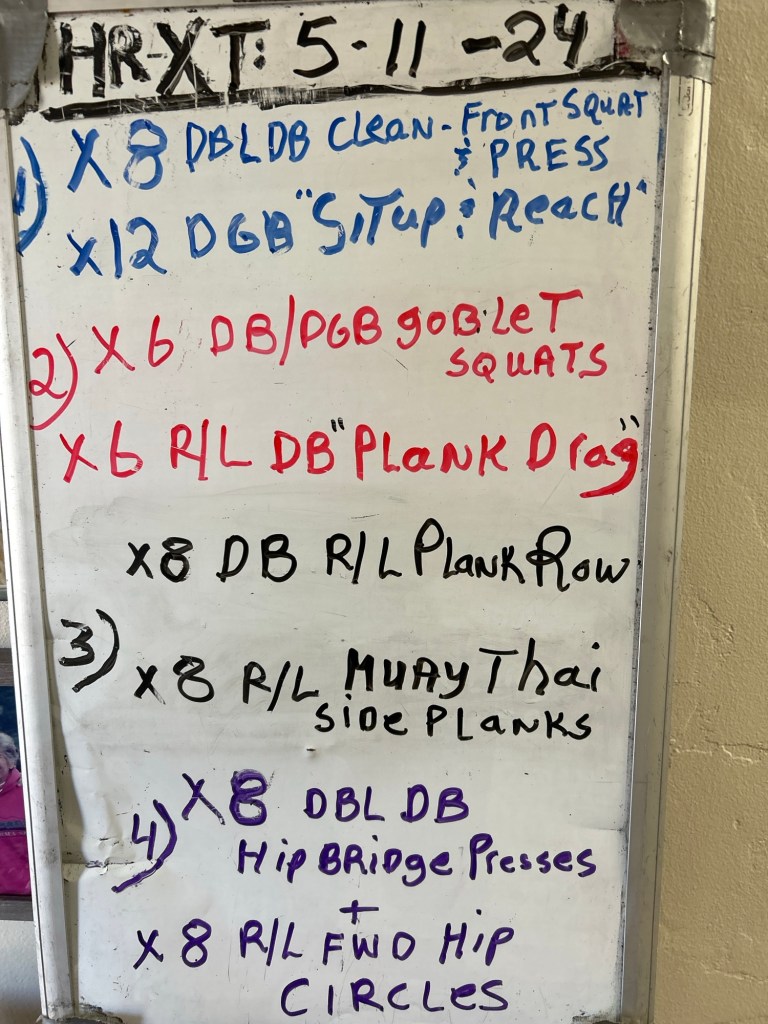 HR-XT: 5-11-24
1) X8 DBL DB Clean-Front SQUAT
& PRESS
X12 DGB "SITup & Reach"
2) X6 DB/DGB goBLeT
SQUATS
X6 R/L DB "PLaNK Drag"
X8 DB R/L PLankRow
3) X8 R/L MUAY Thai
SIDe PLaNKS
4) X8 DBL DB
Hip BRidge Presses
+
X8 R/L FWD Hip
CIRCLeS